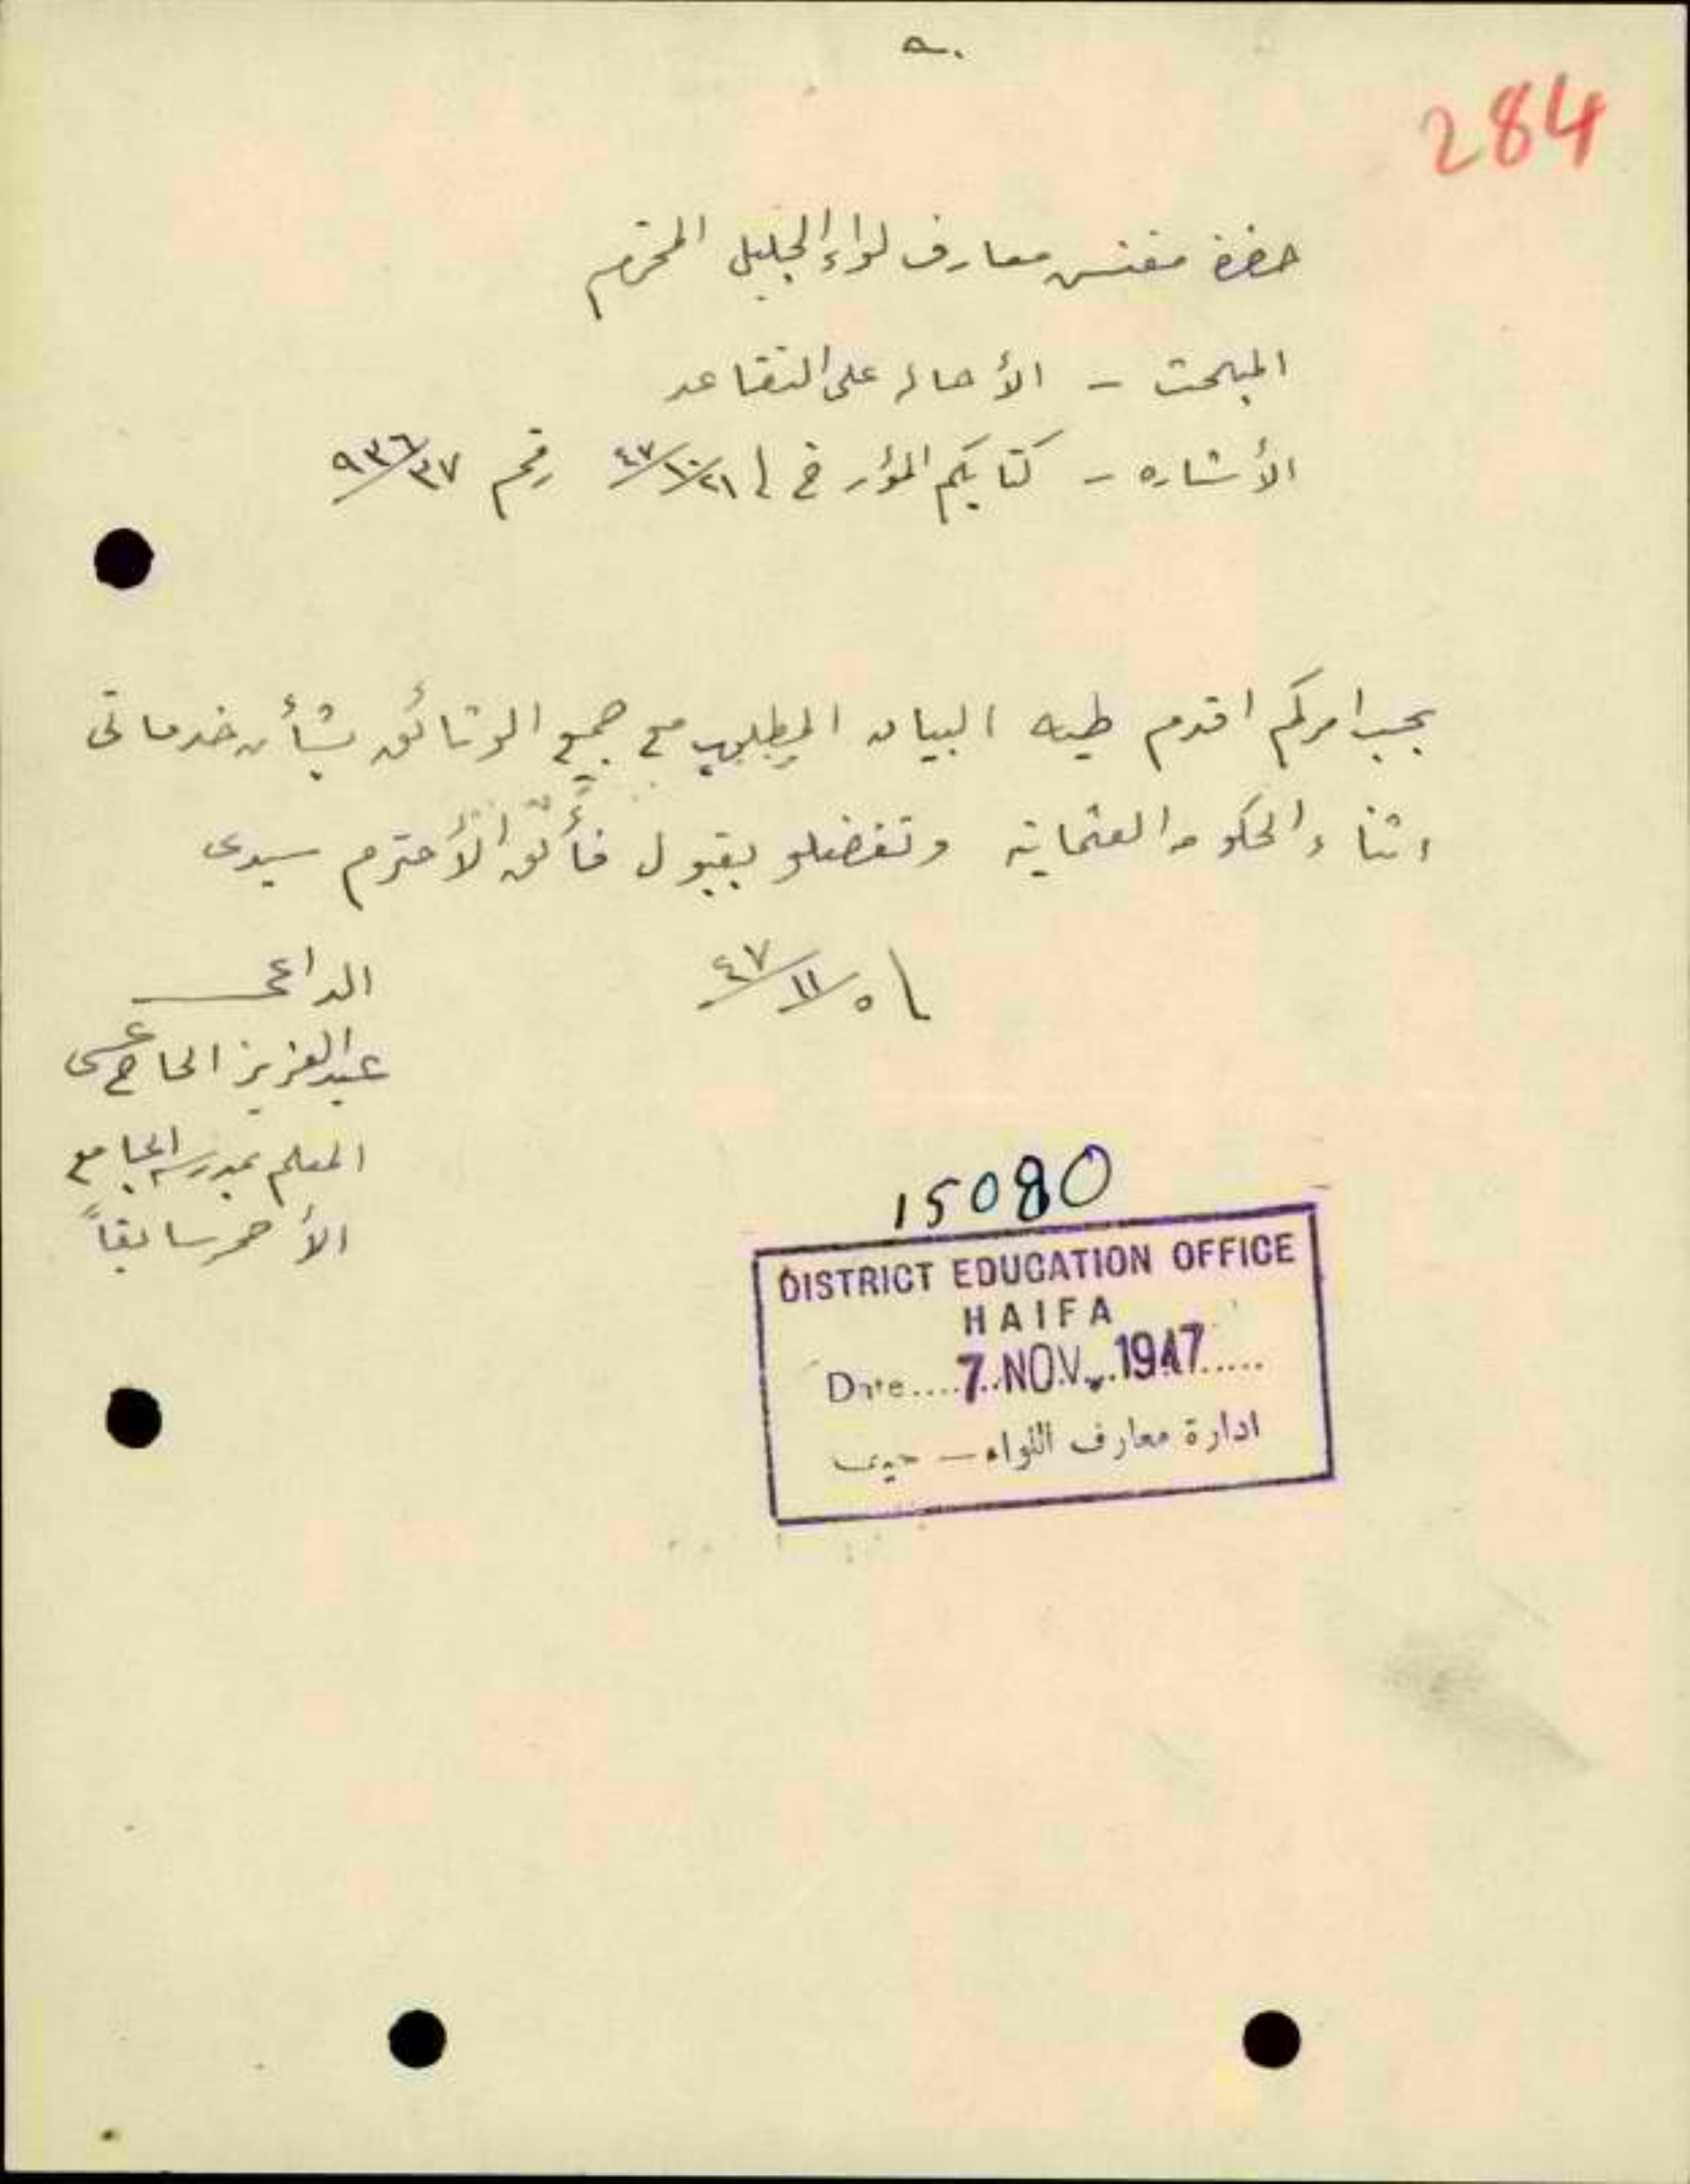 284
حضرة مفتش معارف لواء الجليل المحترم
المبحث - الأحاله على التقاعد
الأشاره - كتابكم المؤرخ في ٢١/١٠/٤٧ رقم ٩٣٦/٣٧
بحسب امركم اقدم طيه البيان المطلوب مع جميع الوثائق بشأن خدماتى
اثناء الحكومه العثمانيه وتفضلو بقبول فأئق الأحترم سيدى
٥/١١/٤٧
الداعى
عبد العزيز الحاج عيسى
المعلم بمدرسة الجامع
الأحمر سابقاً
15080
DISTRICT EDUCATION OFFICE
HAIFA
Date.....7.NOV.1947.....
ادارة معارف اللواء — حيفا